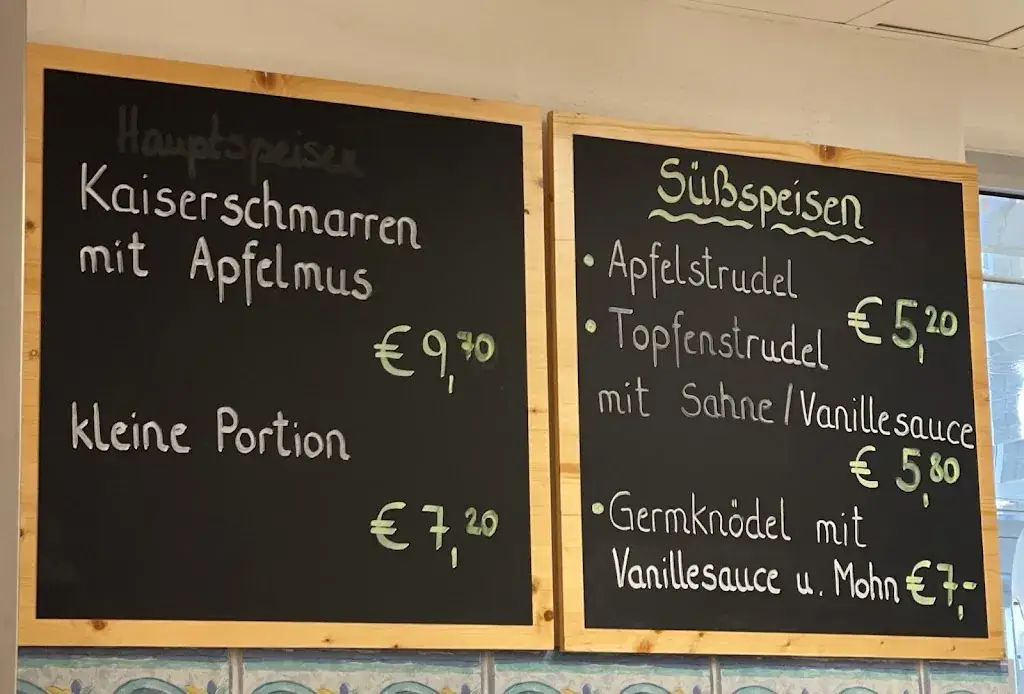 Hauptspeisen
Kaiserschmarren
mit Apfelmus
€ 9,70
kleine Portion
€ 7,20
Süßspeisen
• Apfelstrudel
€ 5,20
• Topfenstrudel
mit Sahne/Vanillesauce
€ 5,80
• Germknödel mit
Vanillesauce u. Mohn € 7,-